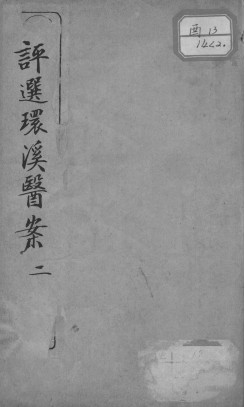 評選環溪醫案 二
酉 13
1422.